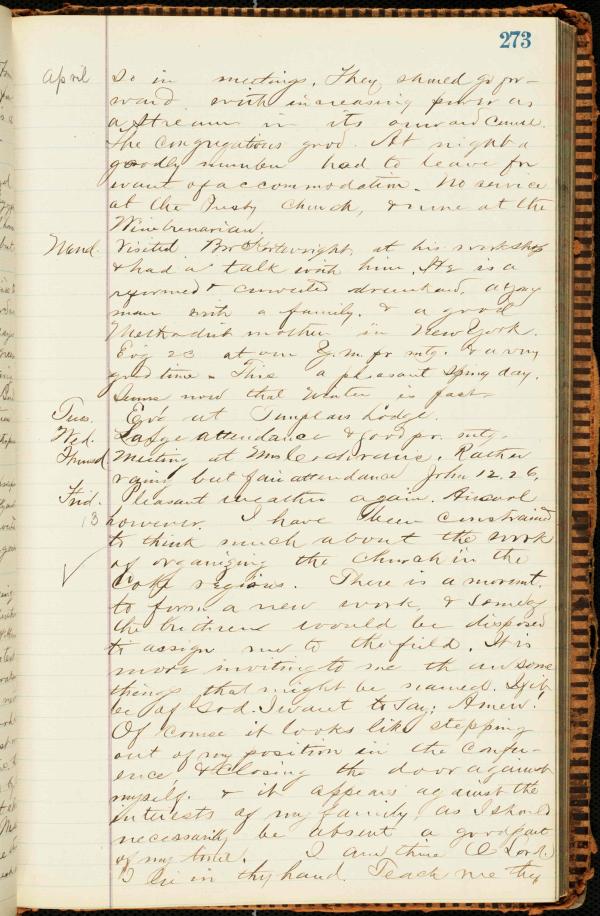 273
April So in meetings. They should go for-
ward with increasing power as
a stream in its onward course.
The congregations good. At night a
goodly number had to leave for
want of accommodation. No service
at the Presby Church, & none at the
Winebrenarian.
Mond. Visited Bro at his workshop
& had a talk with him. He is a
reformed & converted drunkard, a young
man with a family. & a good
Methodist mother in New York.
Evg 23 at our Y.m. pr mtg. & a very
good time. This a pleasant spring day.
Seems now that Winter is past.
Tues. Evg at Templars Lodge.
Wed. Large attendance & good pr. mtg.
Thursd Meeting at Mrs Cochrans. Rather
rainy but fair attendance. John 12.26.
Frid. Pleasant weather again. Air cool
13 however. I have been constrained
to think much about the work
of organizing the Church in the
Coke regions. There is a movmt.
to form a new work, & some of
the brethren would be disposed
to assign me to the field. It is
more inviting to me than some
things that might be named. If it
be of God. I want to say; Amen!
Of course it looks like stepping
out of my position in the confer-
ence & closing the door against
myself. & it appears against the
interests of my family, as I should
necessarily be absent a good part
of my time. I am thine O Lord.
I lie in thy hand. Teach me thy